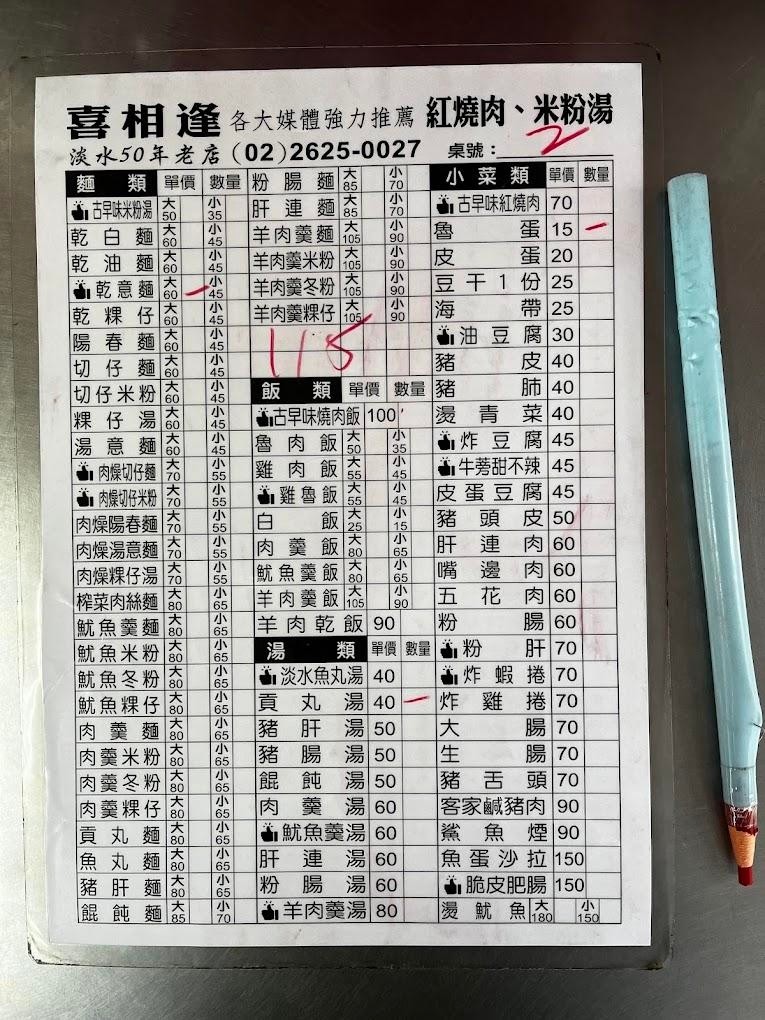 喜相逢 各大媒體強力推薦 紅燒肉、米粉湯
淡水50年老店 (02)2625-0027 桌號: 2
麵類 單價 數量
古早味米粉湯 大50 小35
乾白麵 大60 小45
乾油麵 大60 小45
乾意麵 大60 一 小45
乾粿仔 大60 小45
陽春麵 大60 小45
切仔麵 大60 小45
切仔米粉 大60 小45
粿仔湯 大60 小45
湯意麵 大60 小45
肉燥切仔麵 大70 小55
肉燥切仔米粉 大70 小55
肉燥陽春麵 大70 小55
肉燥湯意麵 大70 小55
肉燥粿仔湯 大70 小55
榨菜肉絲麵 大80 小65
魷魚羹麵 大80 小65
魷魚米粉 大80 小65
魷魚冬粉 大80 小65
魷魚粿仔 大80 小65
肉羹麵 大80 小65
肉羹米粉 大80 小65
肉羹冬粉 大80 小65
肉羹粿仔 大80 小65
貢丸麵 大80 小65
魚丸麵 大80 小65
豬肝麵 大80 小65
餛飩麵 大85 小70
粉腸麵 大85 小70
肝連麵 大85 小70
羊肉羹麵 大105 小90
羊肉羹米粉 大105 小90
羊肉羹冬粉 大105 小90
羊肉羹粿仔 大105 小90
115
飯類 單價 數量
古早味燒肉飯 100
魯肉飯 大50 小35
雞肉飯 大55 小45
雞魯飯 大55 小45
白飯 大25 小15
肉羹飯 大80 小65
魷魚羹飯 大80 小65
羊肉羹飯 大105 小90
羊肉乾飯 90
湯類 單價 數量
淡水魚丸湯 40
貢丸湯 40 一
豬肝湯 50
豬腸湯 50
餛飩湯 50
肉羹湯 60
魷魚羹湯 60
肝連湯 60
粉腸湯 60
羊肉羹湯 80
小菜類 單價 數量
古早味紅燒肉 70
魯蛋 15 一
皮蛋 20
豆干1份 25
海帶 25
油豆腐 30
豬皮 40
豬肺 40
燙青菜 40
炸豆腐 45
牛蒡甜不辣 45
皮蛋豆腐 45
豬頭皮 50
肝連肉 60
嘴邊肉 60
五花肉 60
粉腸 60
粉肝 70
炸蝦捲 70
炸雞捲 70
大腸 70
生腸 70
豬舌頭 70
客家鹹豬肉 90
鯊魚煙 90
魚蛋沙拉 150
脆皮肥腸 150
燙魷魚 大180 小150